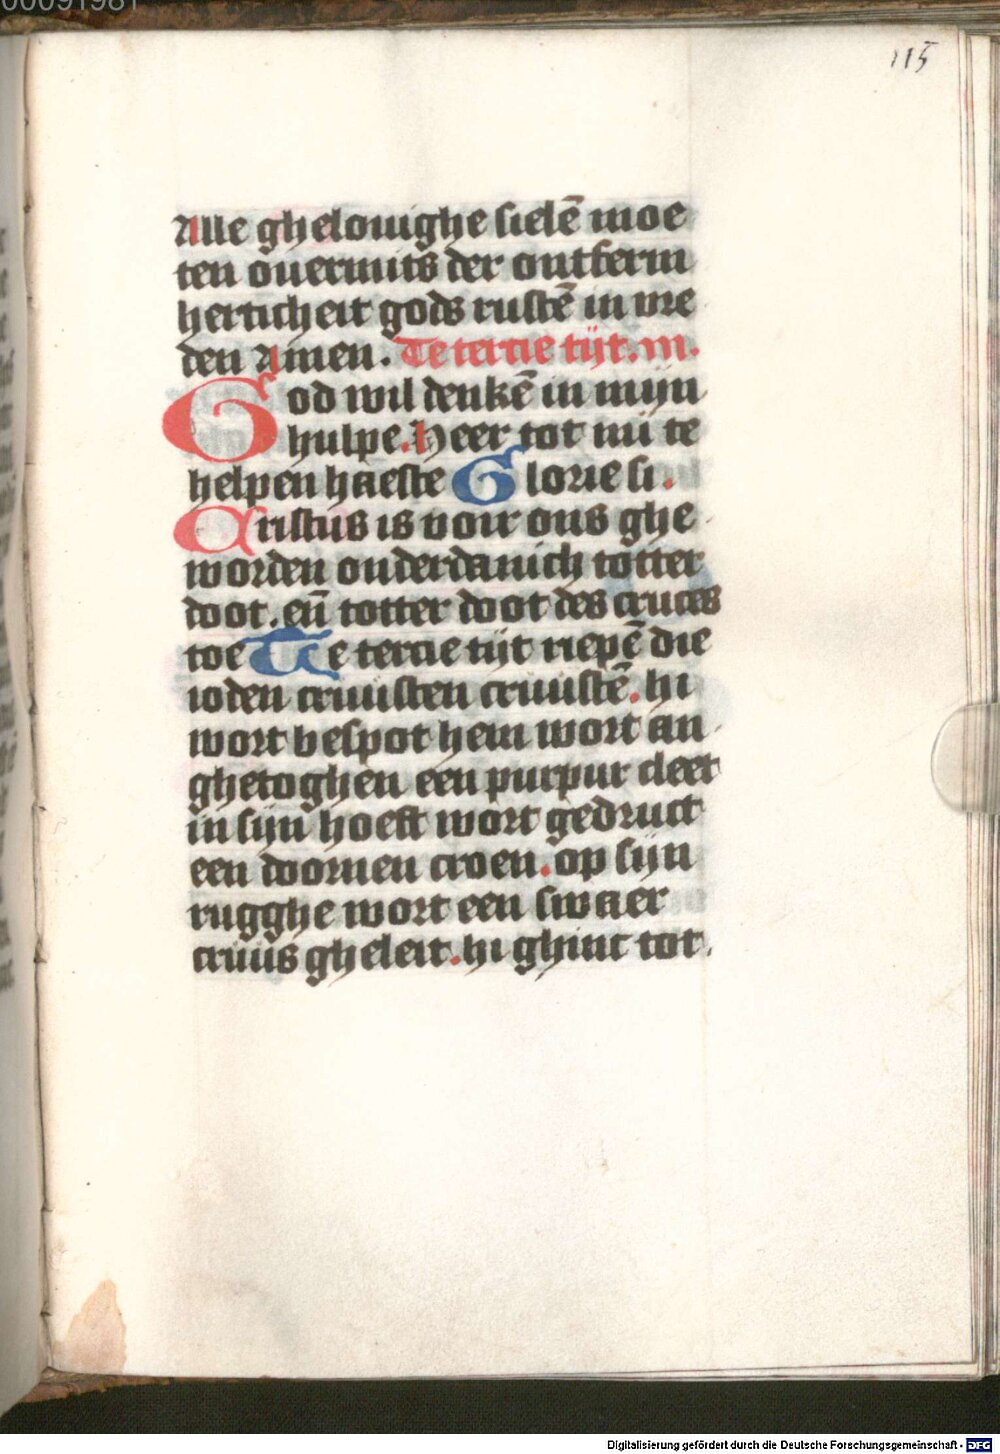 00091981
115
Alle ghelouighe sielē moe
ten ouermits der ontferm
herticheit gods rustē in vre
den Amen. Te tercie tijt. m.
God wil denkē in mijn
hulpe. Heer tot mi te
helpen haeste Glorie si.
Cristus is voir ons ghe
worden onderdanich totter
doot. eñ totter doot des cruces
toe Te tercie tijt riepē die
ioden cruusten cruustē. hi
wort bespot hem wort an
ghetoghen een purpur cleet
in sijn hoeft wort gedruct
een doornen croen. op sijn
rugghe wort een swaer
cruus gheleit. hi ghinc tot.
Digitalisierung gefördert durch die Deutsche Forschungsgemeinschaft - DFG